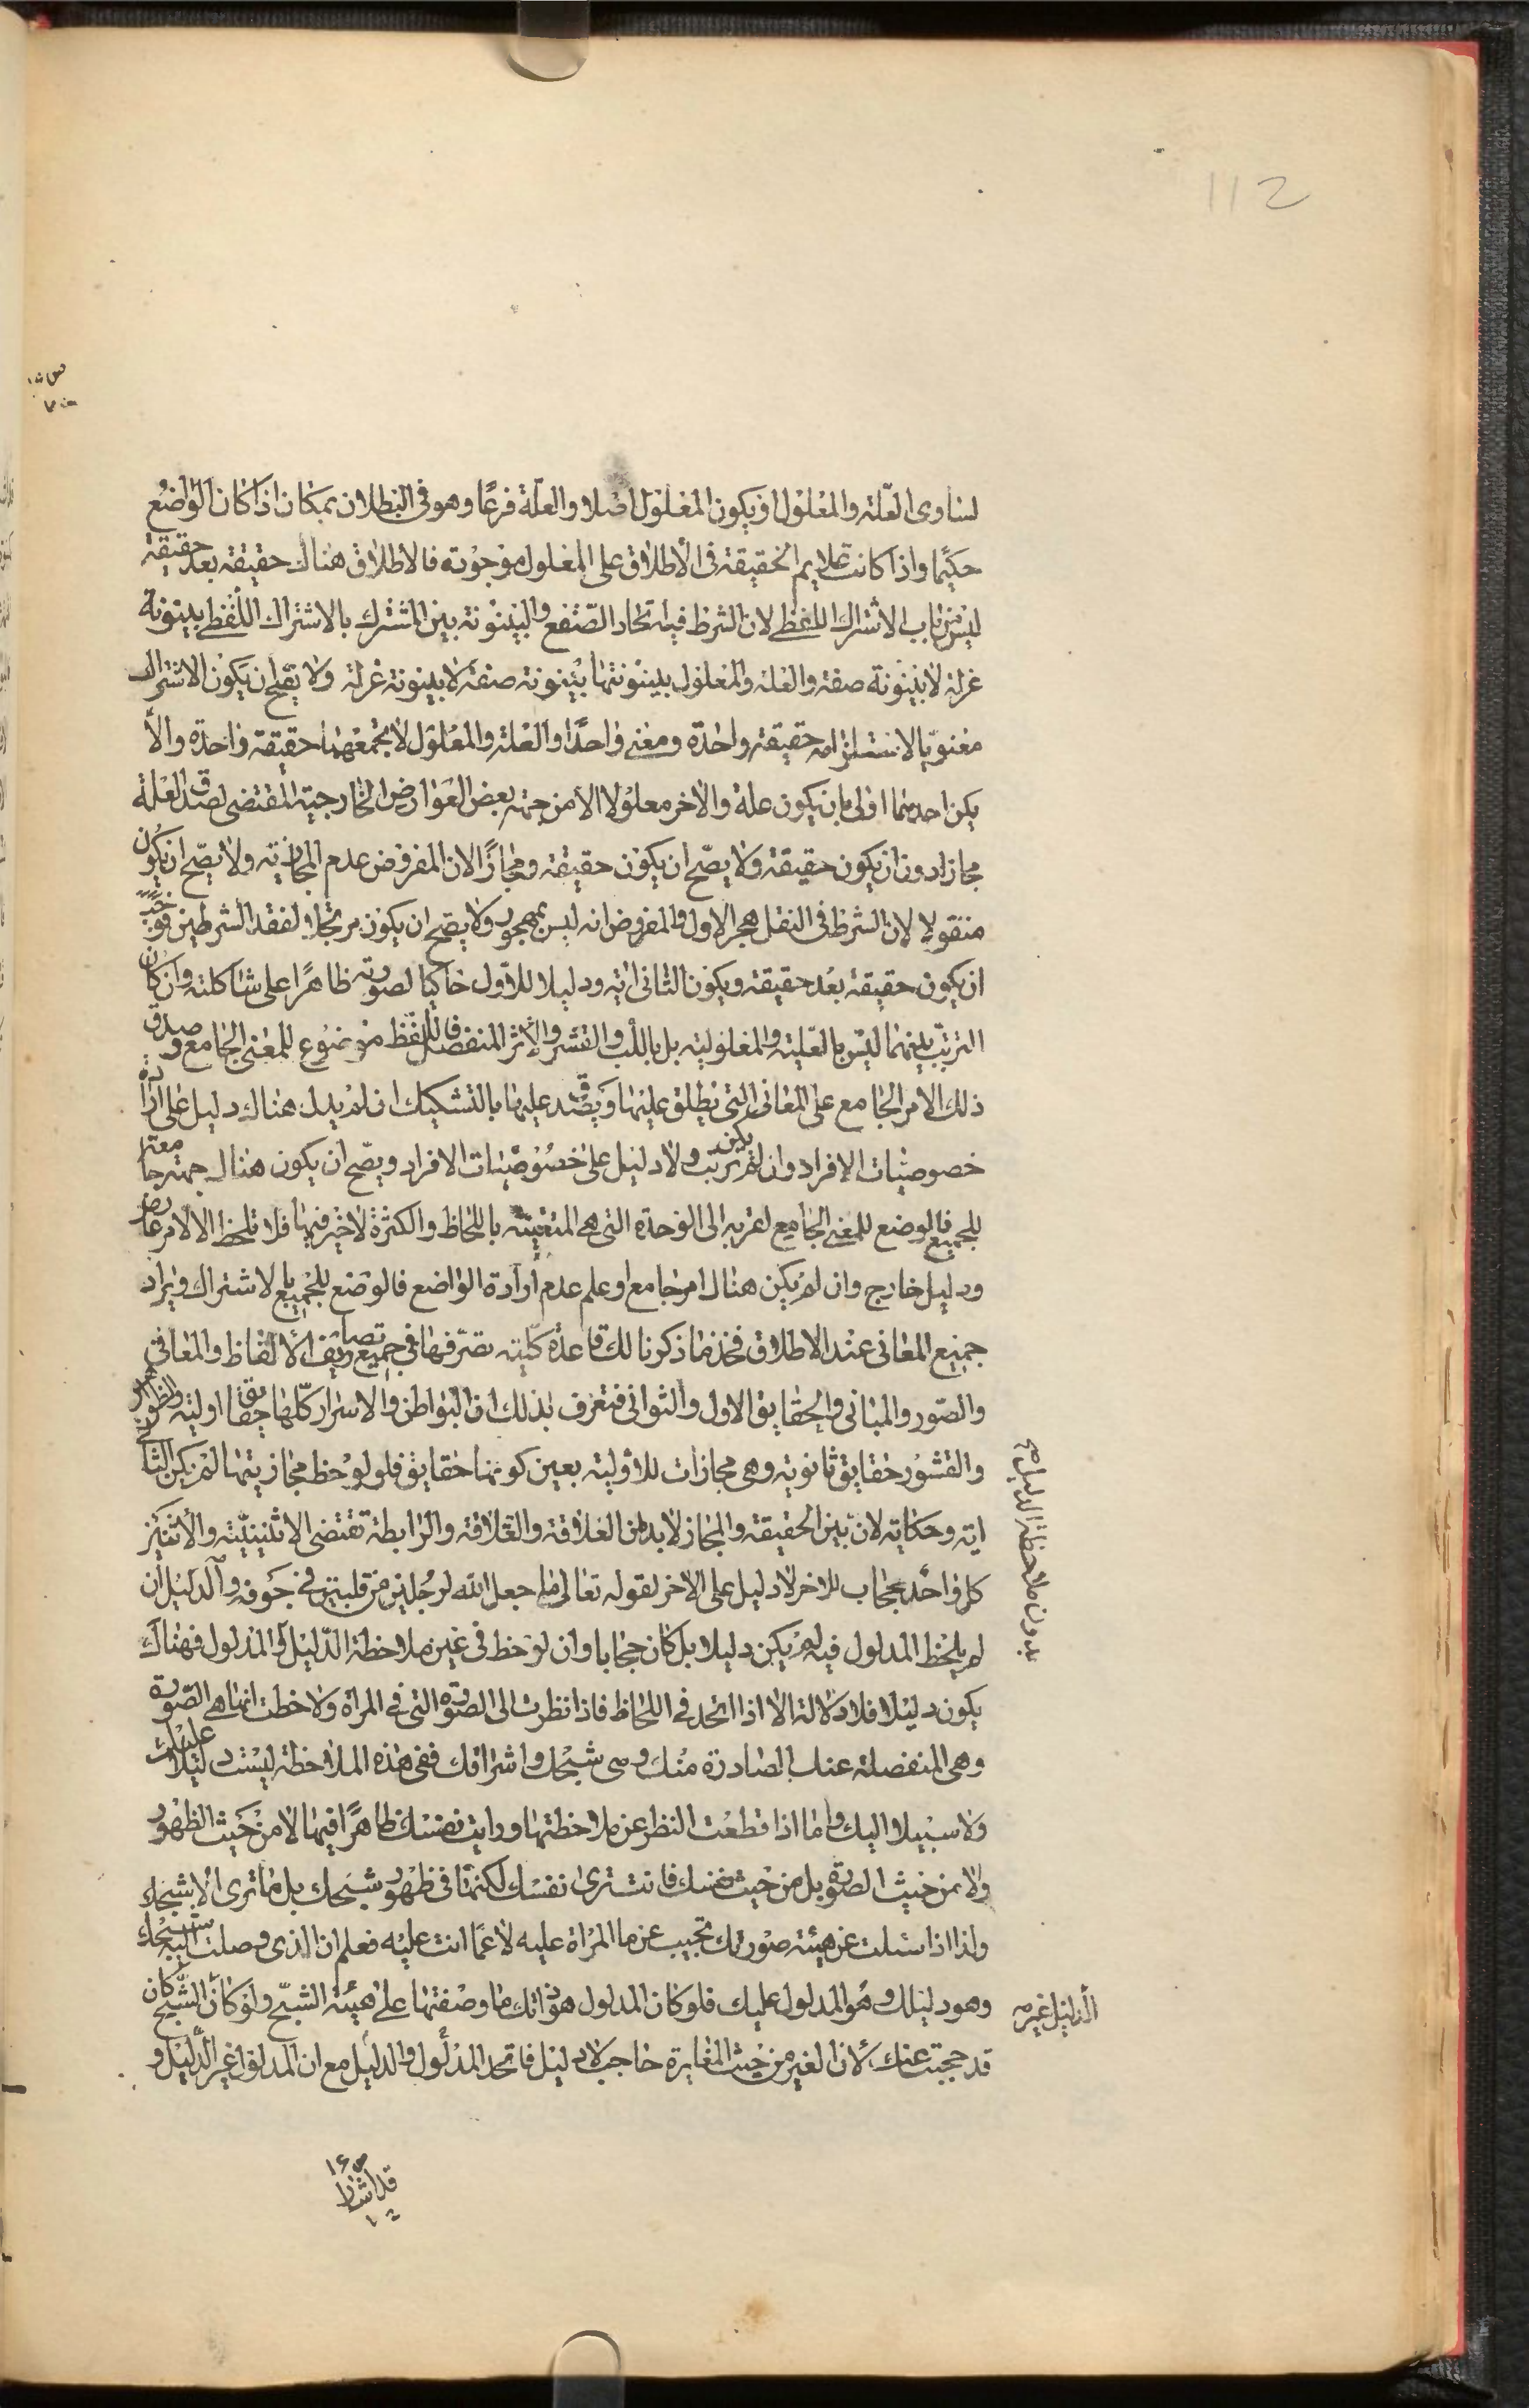 112
لساوى العلة والمعلول او يكون المعلول اصلا والعلة فرعًا وهو فى البطلان بمكان اذا كان الواضع
حكيمًا واذا كانت علايم الحقيقة فى الاطلاق على المعلول موجودة فالاطلاق هناك حقيقة بعد حقيقة
ليس من باب الاشتراك اللفظى لان الشرط فيه اتحاد الصقع والبينونة بين المشترك بالاشتراك اللفظى بينونة
عزلة لا بينونة صفة والعلة والمعلول بينونتهما بينونة صفة لا بينونة عزلة ولا يصح ان يكون الاشتراك
معنويا لاستلزامه حقيقة واحدة ومعنى واحدًا والعلة والمعلول لا تجمعهما حقيقة واحدة والا لم
يكن احدهما اولى بان يكون علة والاخر معلولا الا من جهة بعض العوارض الخارجية المقتضى لصدق العلة
مجازا دون ان يكون حقيقة ولا يصح ان يكون حقيقة ومجازًا لان المفروض عدم المجازية ولا يصح ان يكون
منقولا لان الشرط فى النقل هجر الاول والمفروض انه ليس بمهجور ولا يصح ان يكون مرتجلا لفقد الشرطين فوجب
ان يكون حقيقة بعد حقيقة ويكون الثانى اية ودليلا للاول حاكيا لصورته ظاهرًا على شاكلته وان كان
الترتب بينهما ليس بالعلية والمعلولية بل باللب والقشر والاثر المنفصل فاللفظ موضوع للمعنى الجامع وصدق
ذلك الامر الجامع على المعانى التى يطلق عليها ويصدق عليها بالتشكيك ان لم يدل هناك دليل على ارادة
خصوصيات الافراد وان لم يكن ترتب ولا دليل على خصوصيات الافراد ويصح ان يكون هناك جهة جامعة
للجميع فالوضع للمعنى الجامع لقربه الى الوحدة التى هى المتعينة باللحاظ والكثرة لا خير فيها فلا تلحظ الا لامر عارض
ودليل خارج وان لم يكن هناك امر جامع او علم عدم ارادة الواضع فالوضع للجميع بالاشتراك ويراد
جميع المعانى عند الاطلاق فخذ ما ذكرنا لك قاعدة كلية تصرفها فى جميع تصاريف الالفاظ والمعانى
والصور والمبانى والحقايق الاول والثوانى فتعرف بذلك ان البواطن والاسرار كلها حقايق اولية والظواهر
والقشور حقايق ثانوية وهى مجازات للاولية بعين كونها حقايق فلو لوحظ مجازيتها لم يكن الثانى
اية وحكاية لان بين الحقيقة والمجاز لا بد من العلاقة والعلاقة والرابطة تقتضى الاثنينية والاثنين
كل واحد حجاب للاخر لا دليل على الاخر لقوله تعالى ما جعل الله لرجل من قلبين فى جوفه والدليل ان
لم يلحظ المدلول فيه لم يكن دليلا بل كان حجابا وان لوحظ فى غير ملاحظة الدليل والمدلول فهناك
يكون دليلا فلا دلالة الا اذا اتحد فى اللحاظ فاذا نظرت الى الصورة التى فى المراة ولاحظت انها هى الصورة
وهى المنفصلة عنك الصادرة منك وهى شبحك واشراقك ففى هذه الملاحظة ليست دليلا عليك
ولا سبيلا اليك واما اذا قطعت النظر عن ملاحظتها ورايت نفسك ظاهرًا فيها لا من حيث الظهور
ولا من حيث الصورة بل من حيث نفسك فانت ترى نفسك لكنها فى ظهور شبحك بل ما ترى الا شبحك
ولذا اذا سئلت عن هيئة صورتك تجيب عن ما المراة عليه لا عما انت عليه فعلم ان الذى وصلت اليه شبحك
وهو دليلك وهو المدلول عليك فلو كان المدلول هو ذاتك ما وصفتها على هيئة الشبح ولو كان الشبح كان
قد حجبت عنك لان الغير من حيث المغايرة حاجب لا دليل فاتحد المدلول والدليل مع ان المدلول غير الدليل و
بدون ملاحظة الدليل
الدليل غيره
قد اشار